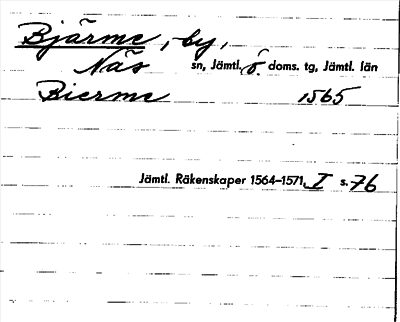 Bjärme, by,
Näs sn, Jämtl. ö. doms. tg, Jämtl. län
Bierme 1565
Jämtl. Räkenskaper 1564–1571, I s. 76